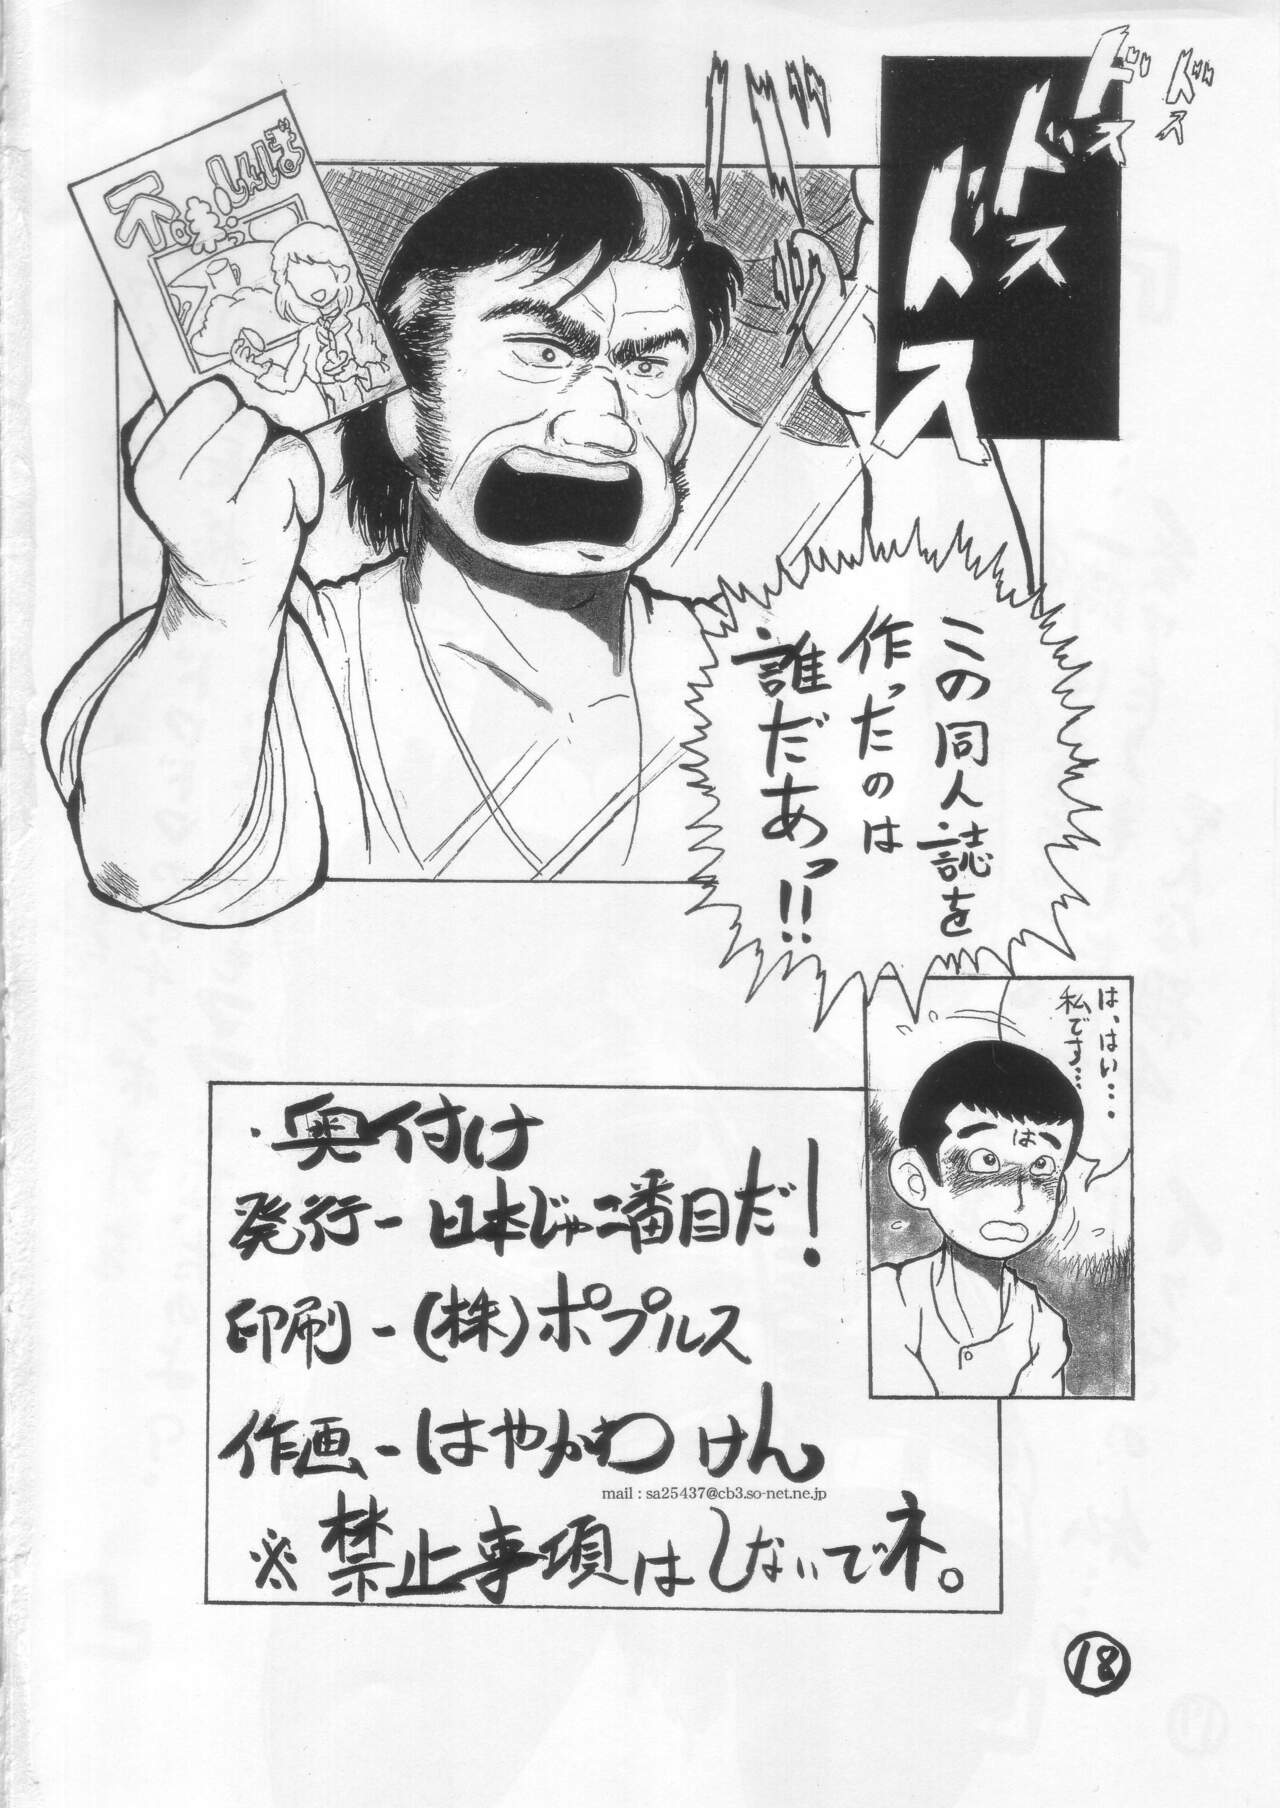 ドス
ドス
ドス
ドス
この同人誌を
作ったのは
誰だあっ!!
は、はい・・・
私です・・・
は
・奥付け
発行－日本じゃ二番目だ!
印刷－(株)ポプルス
作画－はやかわけん
mail : sa25437@cb3.so-net.ne.jp
※禁止事項はしないでネ。
18